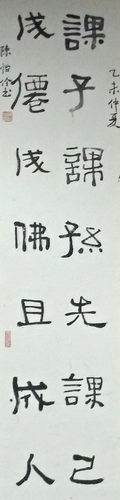 課子課孫先課己
成僊成佛且成人
乙未仲夏